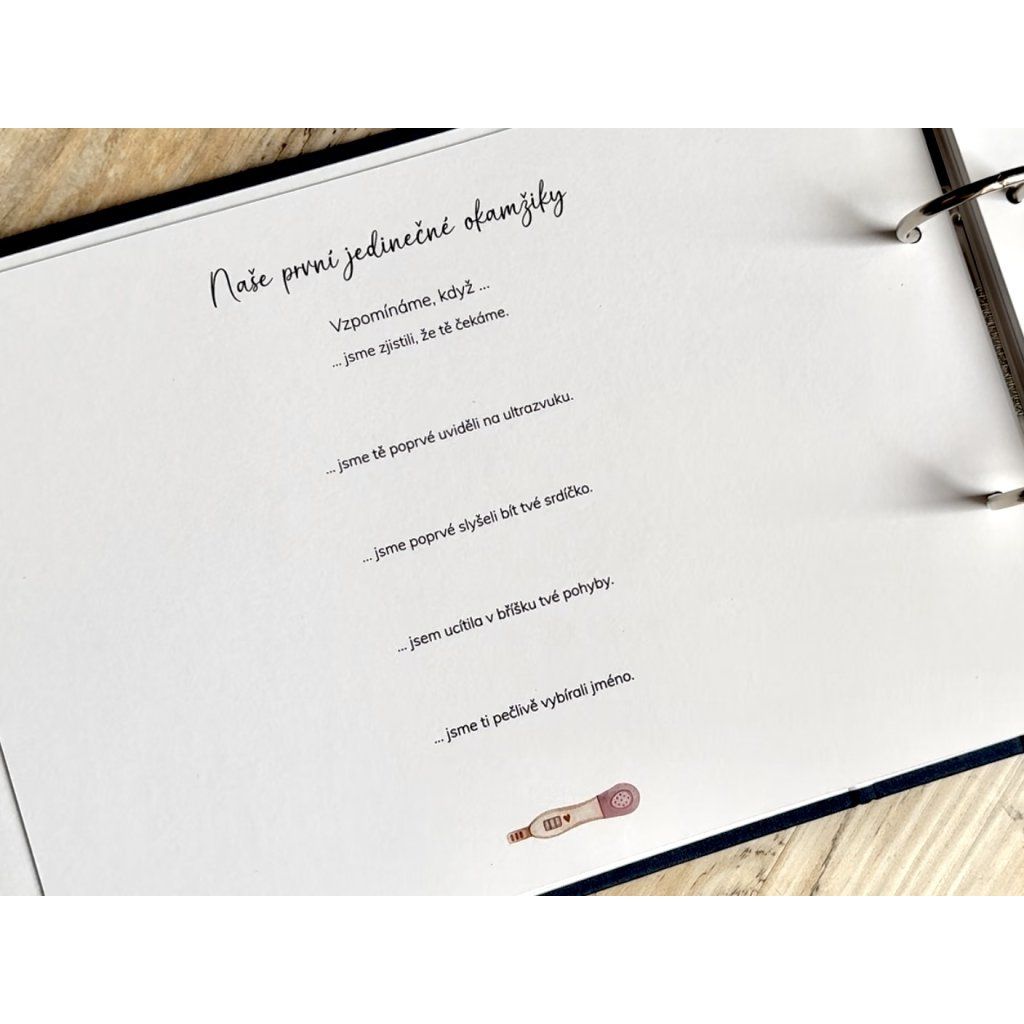 Naše první jedinečné okamžiky
Vzpomínáme, když ...
... jsme zjistili, že tě čekáme.
... jsme tě poprvé uviděli na ultrazvuku.
... jsme poprvé slyšeli bít tvé srdíčko.
... jsem ucítila v bříšku tvé pohyby.
... jsme ti pečlivě vybírali jméno.